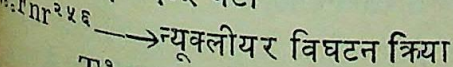 nr२५६ ⟶न्यूक्लीयर विघटन क्रिया